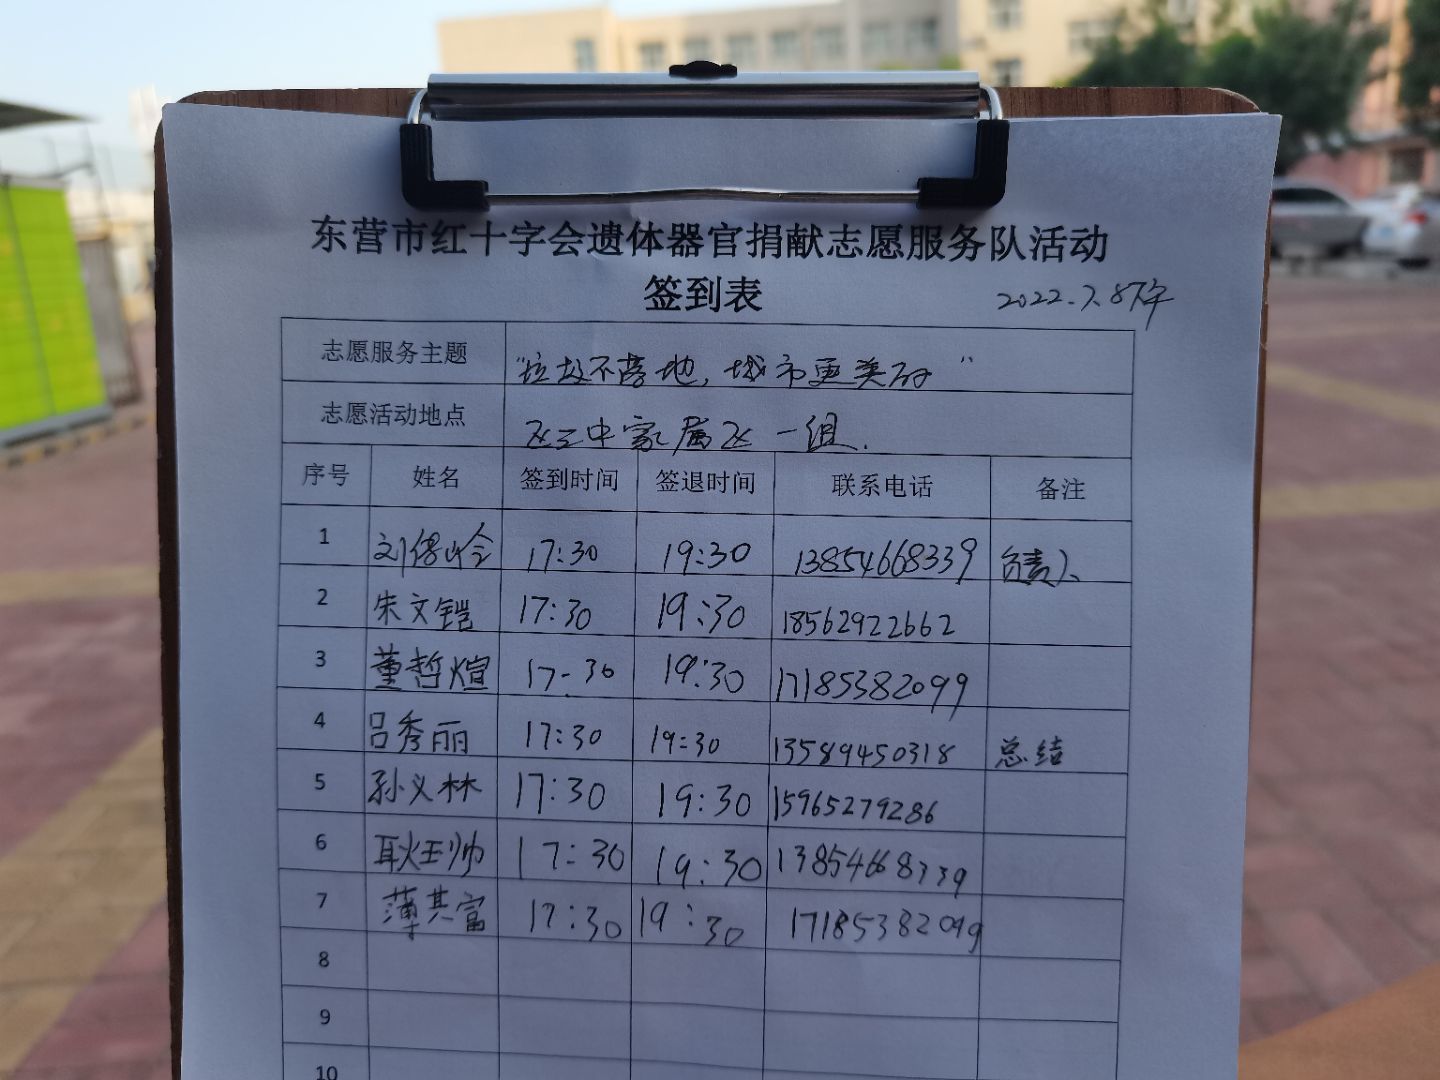 东营市红十字会遗体器官捐献志愿服务队活动
签到表
2022.7.8下午
志愿服务主题 "垃圾不落地,城市更美丽"
志愿活动地点 中家属区一组.
序号 姓名 签到时间 签退时间 联系电话 备注
1 刘 17:30 19:30 13854668339 负责人
2 朱文铠 17:30 19:30 18562922662
3 董哲煊 17:30 19:30 17185382099
4 吕秀丽 17:30 19:30 13589450318 总结
5 孙义林 17:30 19:30 15965279286
6 耿玉帅 17:30 19:30 13854668339
7 薄其富 17:30 19:30 17185382099
8
9
10